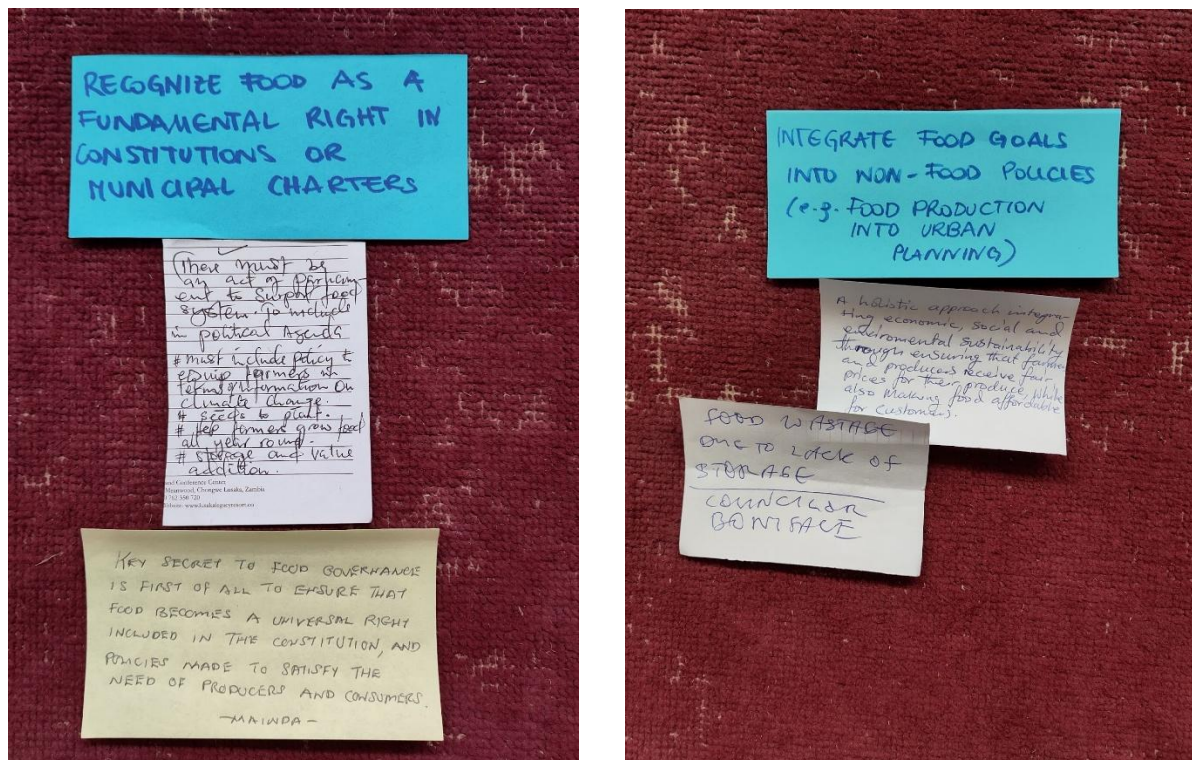 RECOGNIZE FOOD AS A
FUNDAMENTAL RIGHT IN
CONSTITUTIONS OR
MUNICIPAL CHARTERS
There must be
an act of Parliam
ent to Support food
system. To include
in political Agenda
# Must include Policy to
equip farmers in
terms of information on
climate change.
# seeds to plant.
# Help farmers grow food
all year round.
# storage and value
addition.
and Conference Center
Chongwe Lusaka, Zambia
KEY SECRET TO FOOD GOVERNANCE
IS FIRST OF ALL TO ENSURE THAT
FOOD BECOMES A UNIVERSAL RIGHT
INCLUDED IN THE CONSTITUTION, AND
POLICIES MADE TO SATISFY THE
NEED OF PRODUCERS AND CONSUMERS.
-MAINDA-
INTEGRATE FOOD GOALS
INTO NON-FOOD POLICIES
(e.g. FOOD PRODUCTION
INTO URBAN
PLANNING)
A holistic approach integra-
ting economic, social and
enviromental sustainability
through ensuring that farmers
and producers receive fair
prices for their produce, while
also making food affordable
for customers.
FOOD WASTAGE
DUE TO LACK OF
STORAGE
COUNCILOR
BONIFACE